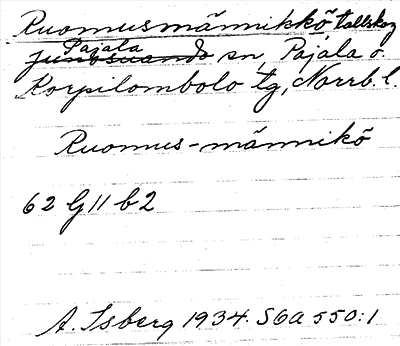 Ruomusmännikkö, tallskog
Pajala
Junosuando sn, Pajala o.
Korpilombolo tg, Norrb. l.
Ruomus-männikö
62 G 11 b 2
A. Isberg 1934. S6a 550:1